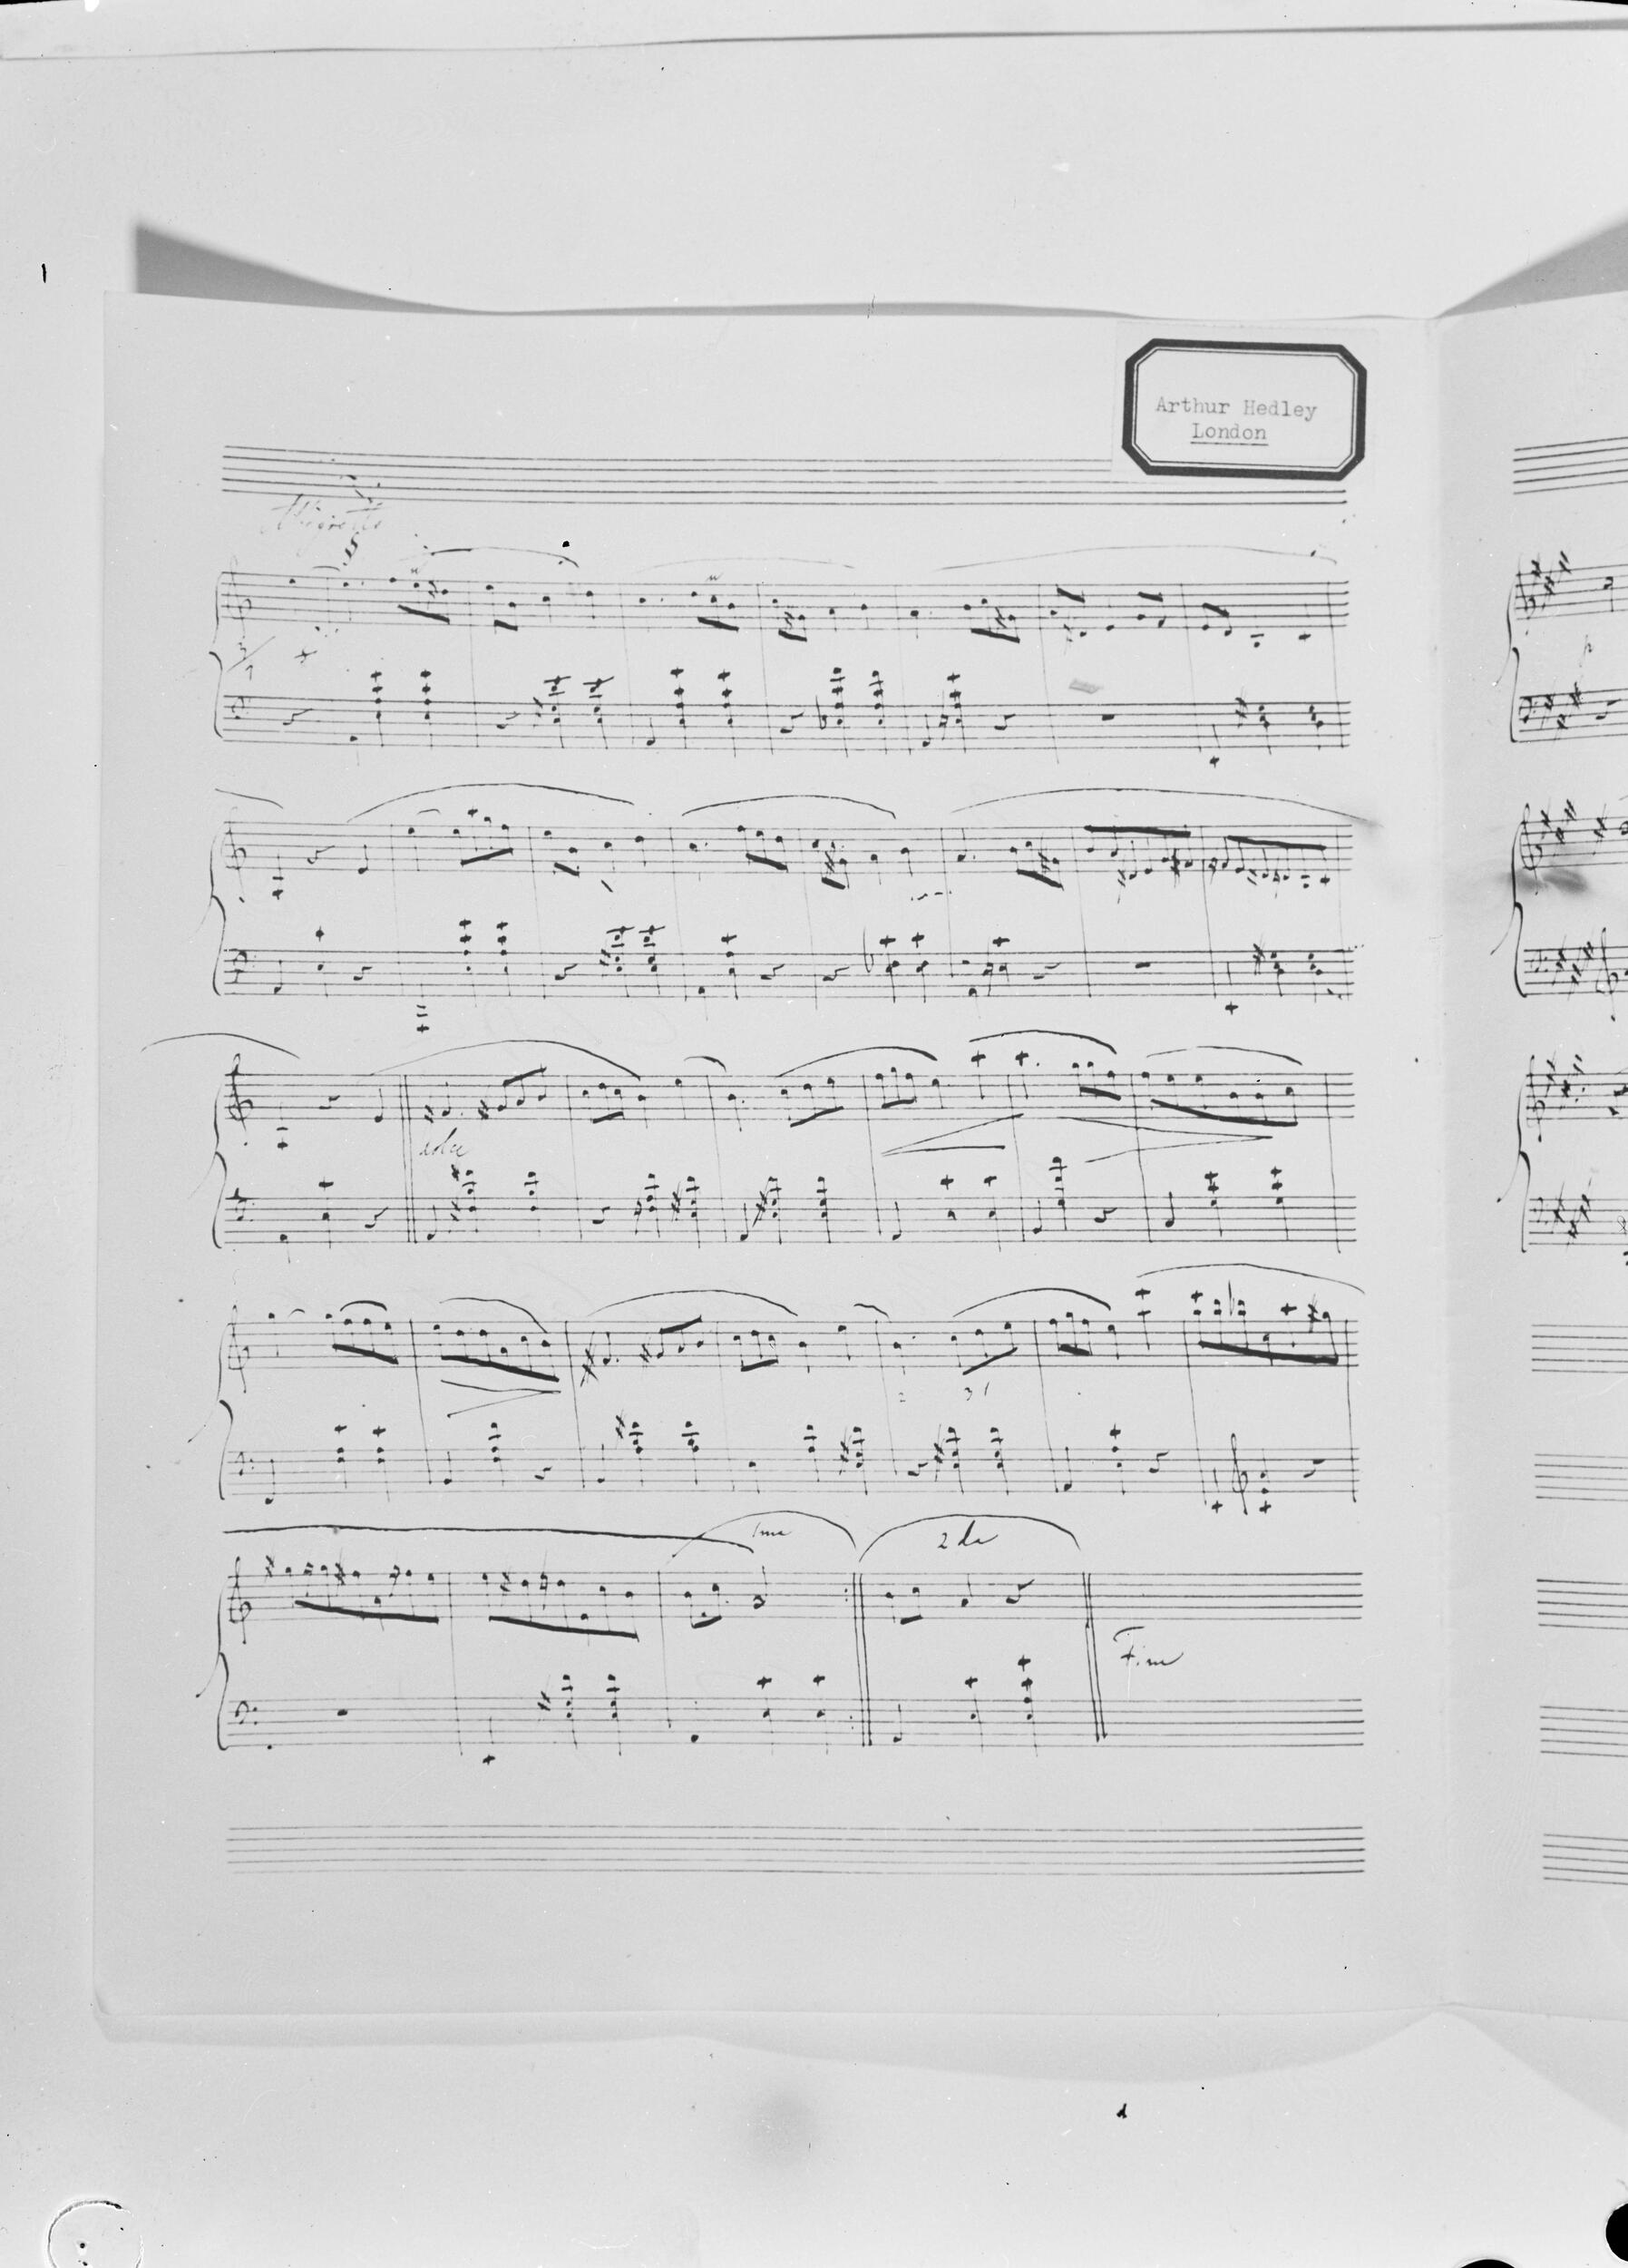 Arthur Hedley
London
Allegretto
3/4
dolce
2 3 1
1ma
2 da
Fine